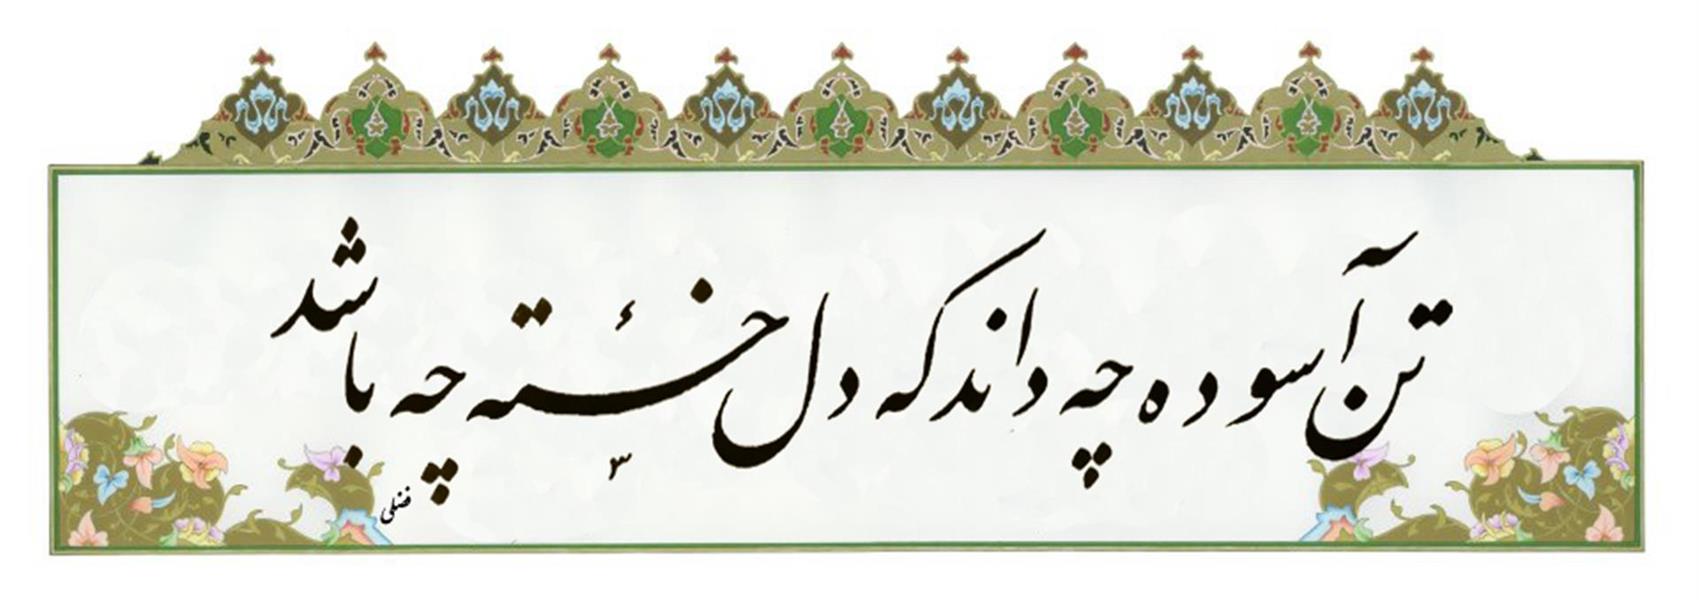 تن آسوده چه داند که دل خسته چه باشد
فضلی